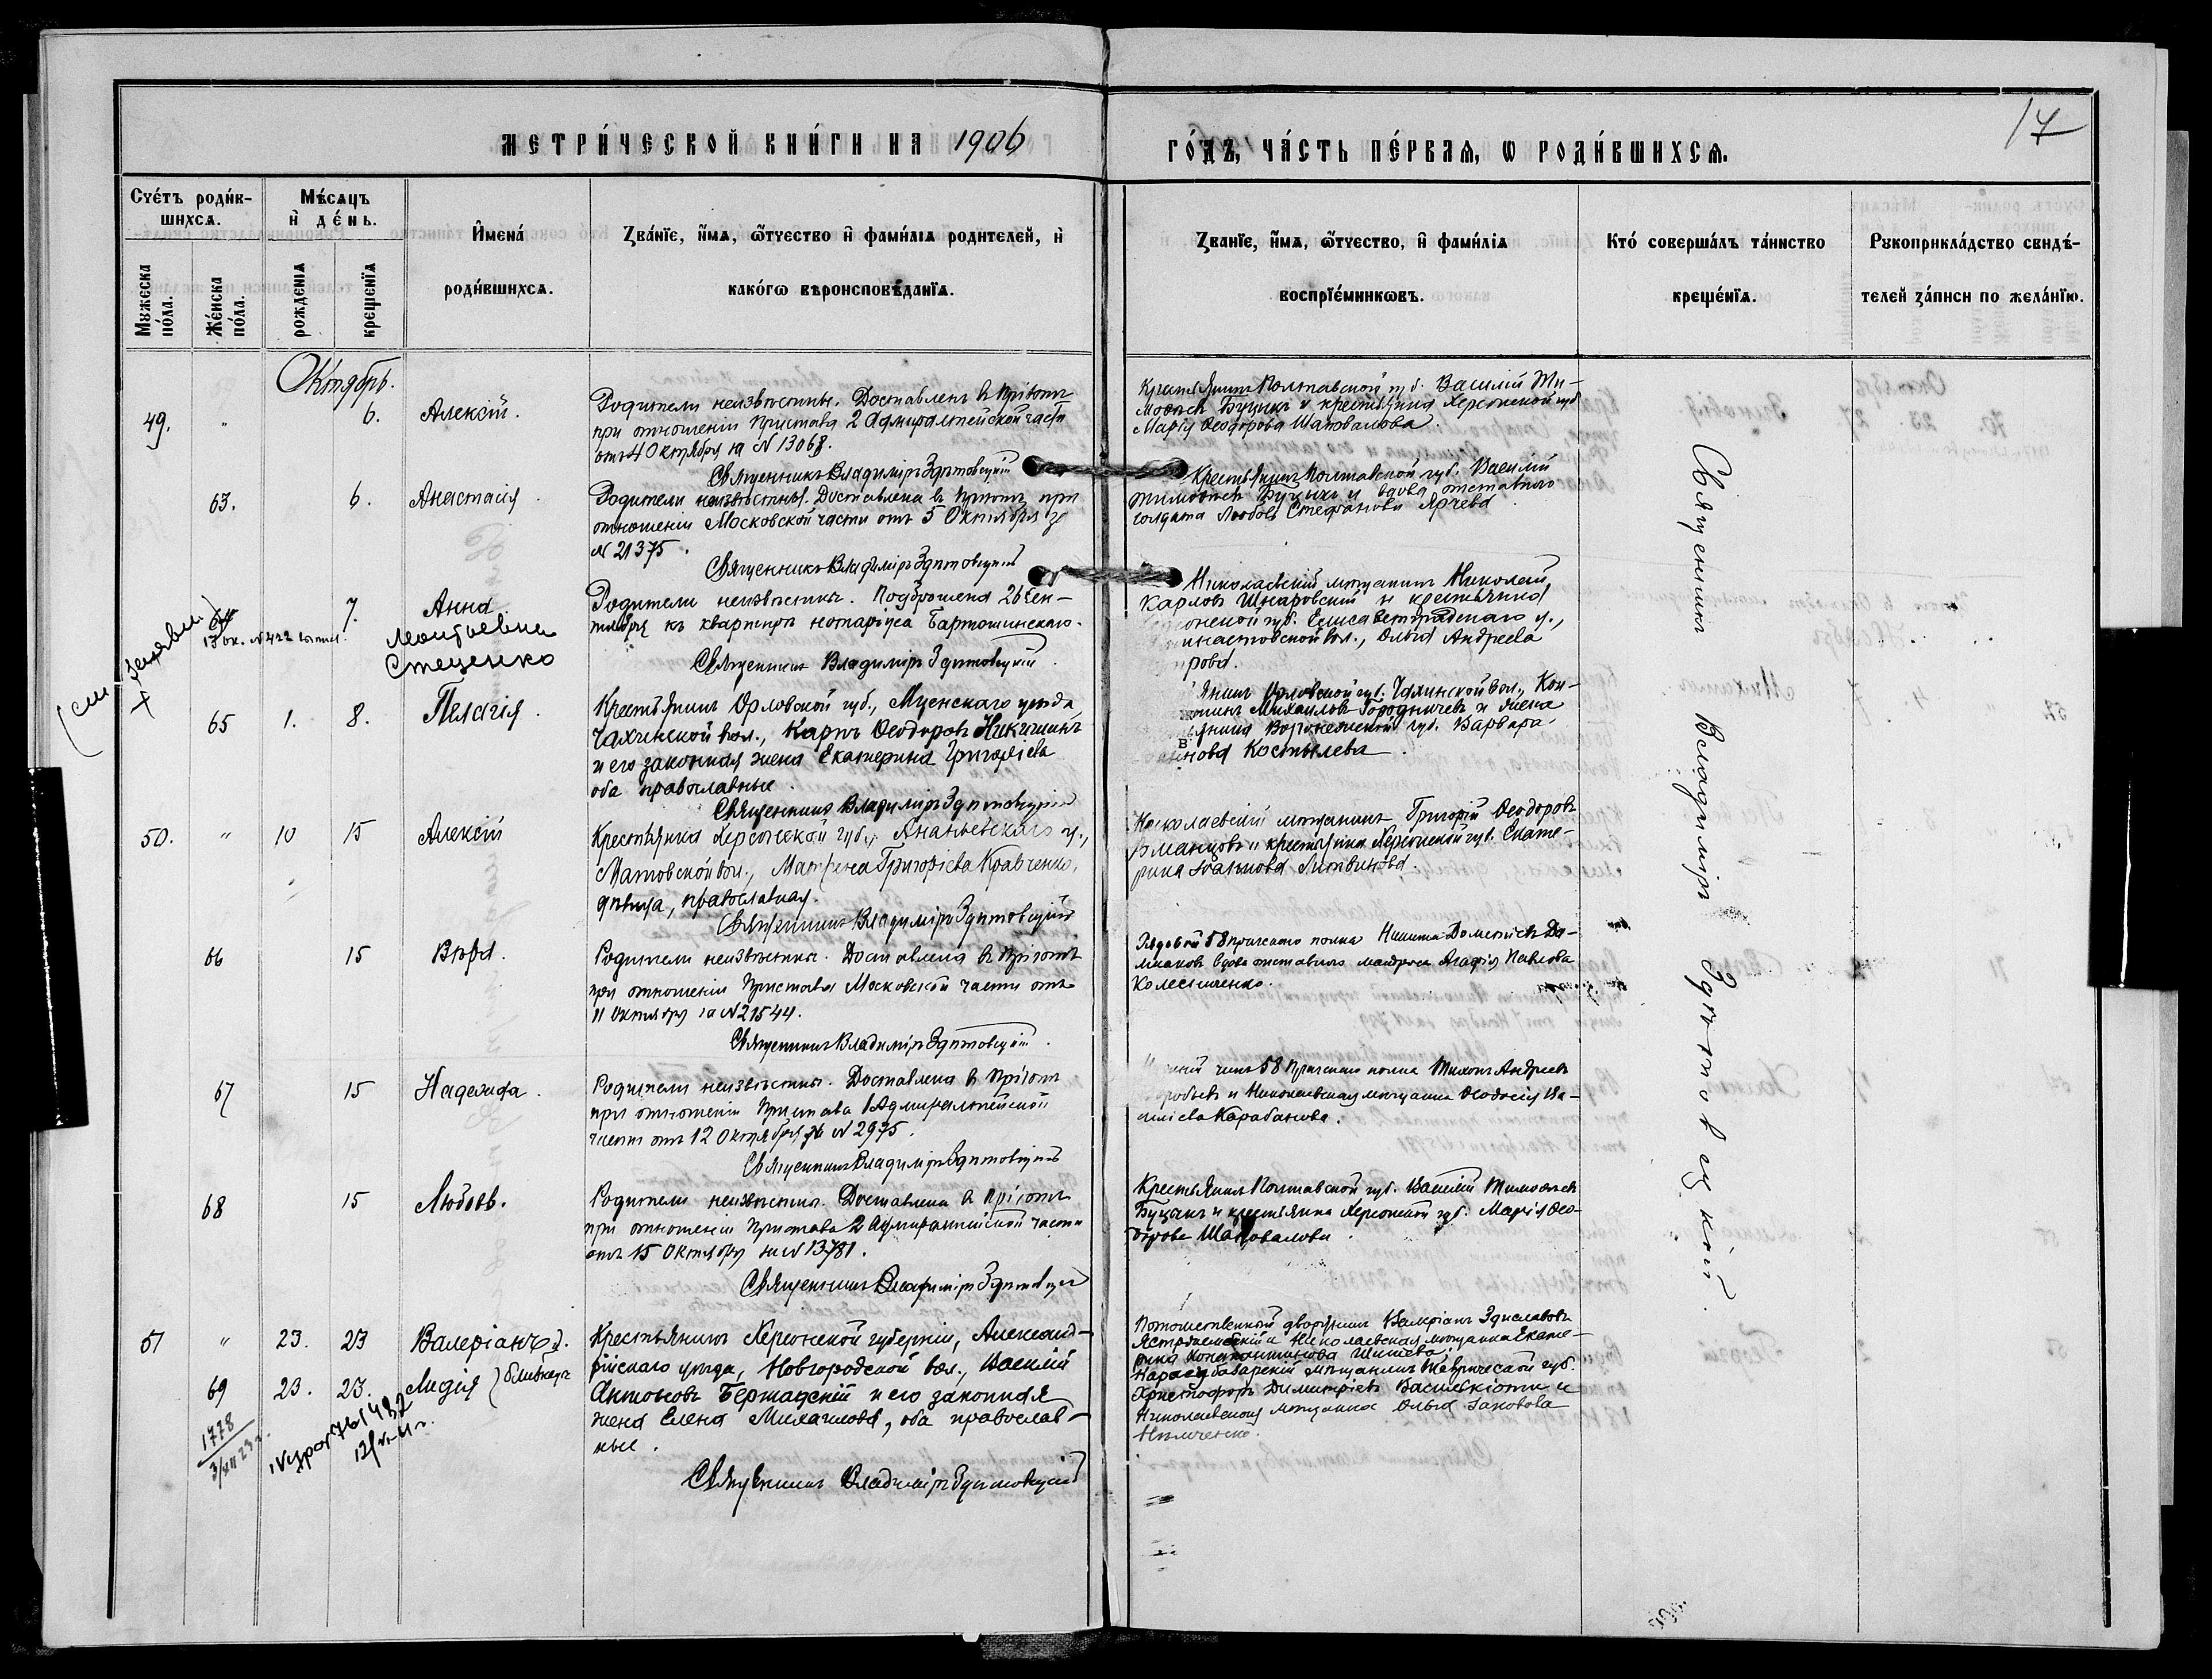 МЕТРИ́ЧЕСКОЙ КНИ́ГИ НА 1906
ГО́ДЪ, ЧА́СТЬ ПЕ́РВАѦ, Ѡ РОДИ́ВШИХСѦ.
17
Сче́тъ роди́в-
шихсѧ.
Мѣ́сѧцъ
и҆ де́нь.
И҆мена́
роди́вшихсѧ.
Зва́нїе, и҆́мѧ, ѻ҆́тчество и҆ фами́лїѧ родителей, и҆
како́гѡ вѣроисповѣ́данїѧ.
Зва́нїе, и҆́мѧ, ѻ҆́тчество, и҆ фами́лїѧ
воспрїе́мникѡвъ.
Кто́ соверша́лъ та́инство
креще́нїѧ.
Рукоприкла́дство свидѣ́-
телей за́писи по жела́нїю.
Мужеска
по́ла.
Же́нска
по́ла.
рожденїѧ
крещенїѧ
Октябрь.
49. " 6. Алексій.
Родители неизвѣстны. Доставленъ въ пріютъ
при отношеніи Пристава 2 Адмиралтейской части
отъ 4 Октября за N 13068.
Священникъ Владиміръ Здитовецкій
Крестьянинъ Полтавской губ. Василій Ти-
моѳеевъ Буцыкъ и крестьянка Херсонской губ.
Марія Ѳеодорова Шаповалова.
63. 6. Анастасія.
Родители неизвѣстны. Доставлена въ пріютъ при
отношеніи Московской части отъ 5 Октября за
N 21375.
Священникъ Владиміръ Здитовецкій
Крестьянинъ Полтавской губ. Василій
Тимоѳеевъ Буцыкъ и вдова отставного
солдата Любовь Стефанова Ярчева
64 7. Анна.
Мойсѣевна
Стеценко
13 ок. N 422
Родители неизвѣстны. Подброшена 26 Сен-
тября къ квартирѣ нотаріуса Бартошинскаго.
Священникъ Владиміръ Здитовецкій.
Николаевскій мѣщанинъ Николай
Карловъ Шнаровскій и крестьянка
губ. Елисаветградскаго у.,
вол., Ольга Андреева
рова.
65 1. 8. Пелагія.
Крестьянинъ Орловской губ., Мценскаго уѣзда,
Чахинской вол., Карпъ Ѳеодоровъ Никишинъ
и его законная жена Екатерина Григоріева
оба православные.
Священникъ Владиміръ Здитовецкій
янинъ Орловской губ. Чахинской вол., Кон-
Михаиловъ Городничевъ и жена
янина Воронежской губ. Варвара
нова Костылева.
50. " 10 15 Алексій
Крестьянка Херсонской губ., Ананьевскаго у.,
вол., Матрена Григоріева Кравченко,
дѣвица, православная.
Священникъ Владиміръ Здитовецкій
Николаевскій мѣщанинъ Григорій Ѳеодоровъ
и крестьянка Херсонской губ. Екате-
рина Литвинова.
66 15 Вѣра.
Родители неизвѣстны. Доставлена въ пріютъ
при отношеніи Пристава Московской части отъ
11 Октября за N 21544.
Священникъ Владиміръ Здитовецкій.
Рядовой 58 Пражскаго полка Никита
вдова отставного матроса Агафія Павлова
Колесниченко.
67 15 Надежда.
Родители неизвѣстны. Доставлена въ пріютъ
при отношеніи Пристава 1 Адмиралтейской
части отъ 12 Октября за N 2975.
Священникъ Владиміръ Здитовецкій
чинъ 58 Пражскаго полка Тихонъ Андреевъ
и Николаевская мѣщанка Ѳеодосія Ва-
силіева Карабанова.
68 15 Любовь.
Родители неизвѣстны. Доставлена въ пріютъ
при отношеніи Пристава 2 Адмиралтейской части
отъ 15 Октября за N 13781.
Священникъ Владиміръ Здитовецкій
Крестьянинъ Полтавской губ. Василій Тимоѳеевъ
Буцыкъ и крестьянка Херсонской губ. Марія Ѳео-
дорова Шаповалова.
51 " 23. 23 Валеріанъ
69 23. 23. Лидія } близнецы
Крестьянинъ Херсонской губерніи, Александ-
рійскаго уѣзда, Новгородской вол., Василій
Антоновъ Бершадскій и его законная
жена Елена Михаилова, оба православ-
ные.
Священникъ Владиміръ Здитовецкій
Потомственный дворянинъ Валеріанъ Здиславовъ
и Николаевская мѣщанка Екате-
рина Константинова Шишева;
мѣщанинъ Таврической губ.
Христофоръ Димитріевъ и
Николаевская мѣщанка Ольга Яковова
1778
Священникъ Владиміръ Здитовецкій.